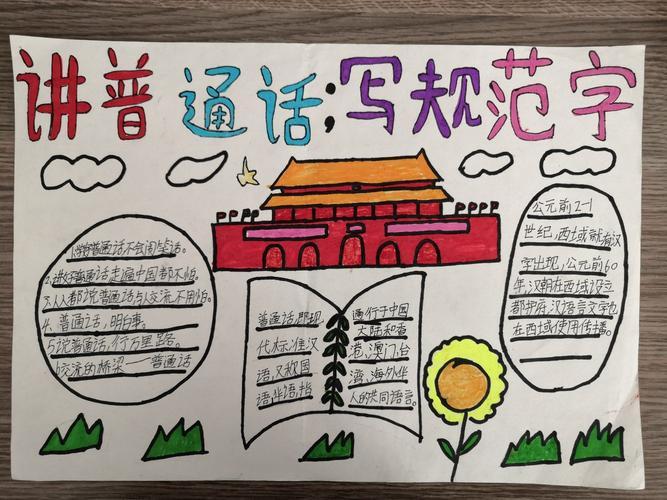 讲普通话;写规范字
1.学好普通话,不会闹笑话。
2.讲好普通话走遍中国都不怕。
3.人人都说普通话与人交流不用怕。
4、普通话,明白事。
5说普通话,行万里路。
6交流的桥梁——普通话
普通话,即现
代标准汉
语,又叙国
语,华语,指
通行于中国
大陆和香
港,澳门,台
湾,海外华
人的共同语言。
公元前2-1
世纪,西域就有汉
字出现,公元前60
年,汉朝在西域设立
都护府,汉语言文字也
在西域使用传播。